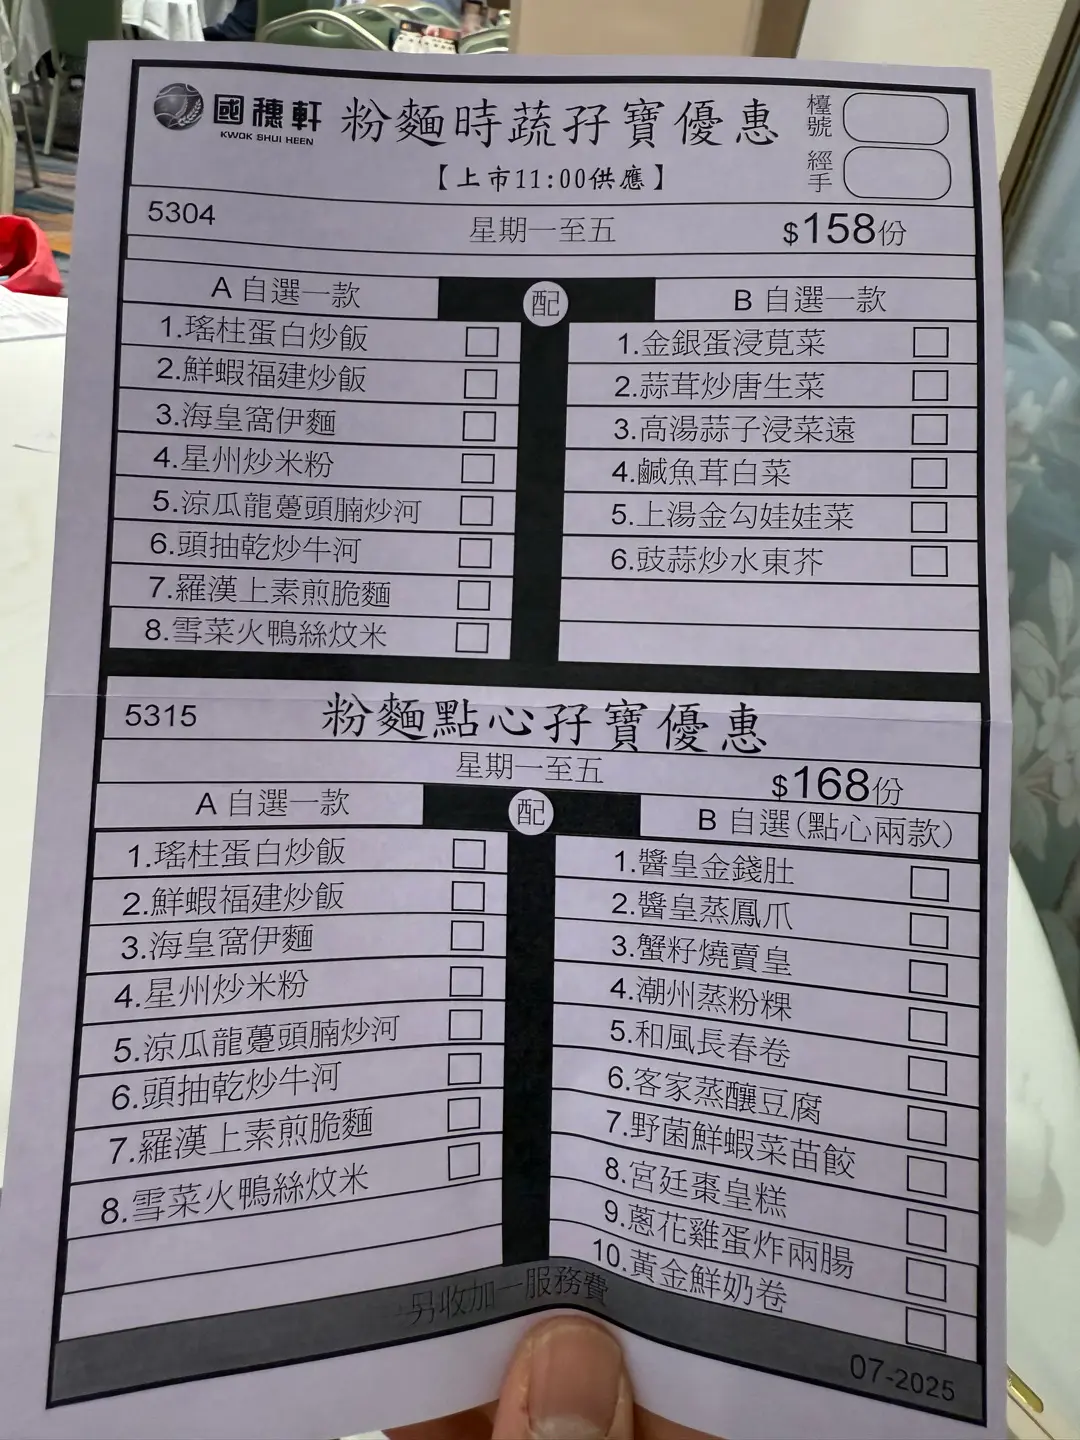 國穗軒
KWOK SHUI HEEN
粉麵時蔬孖寶優惠
【上市11:00供應】
檯號
經手
5304 星期一至五 $158份
A 自選一款 配 B 自選一款
1.瑤柱蛋白炒飯 1.金銀蛋浸莧菜
2.鮮蝦福建炒飯 2.蒜茸炒唐生菜
3.海皇窩伊麵 3.高湯蒜子浸菜遠
4.星州炒米粉 4.鹹魚茸白菜
5.涼瓜龍躉頭腩炒河 5.上湯金勾娃娃菜
6.頭抽乾炒牛河 6.豉蒜炒水東芥
7.羅漢上素煎脆麵
8.雪菜火鴨絲炆米
5315 粉麵點心孖寶優惠
星期一至五 $168份
A 自選一款 配 B 自選(點心兩款)
1.瑤柱蛋白炒飯 1.醬皇金錢肚
2.鮮蝦福建炒飯 2.醬皇蒸鳳爪
3.海皇窩伊麵 3.蟹籽燒賣皇
4.星州炒米粉 4.潮州蒸粉粿
5.涼瓜龍躉頭腩炒河 5.和風長春卷
6.頭抽乾炒牛河 6.客家蒸釀豆腐
7.羅漢上素煎脆麵 7.野菌鮮蝦菜苗餃
8.雪菜火鴨絲炆米 8.宮廷棗皇糕
9.蔥花雞蛋炸兩腸
10.黃金鮮奶卷
另收加一服務費
07-2025